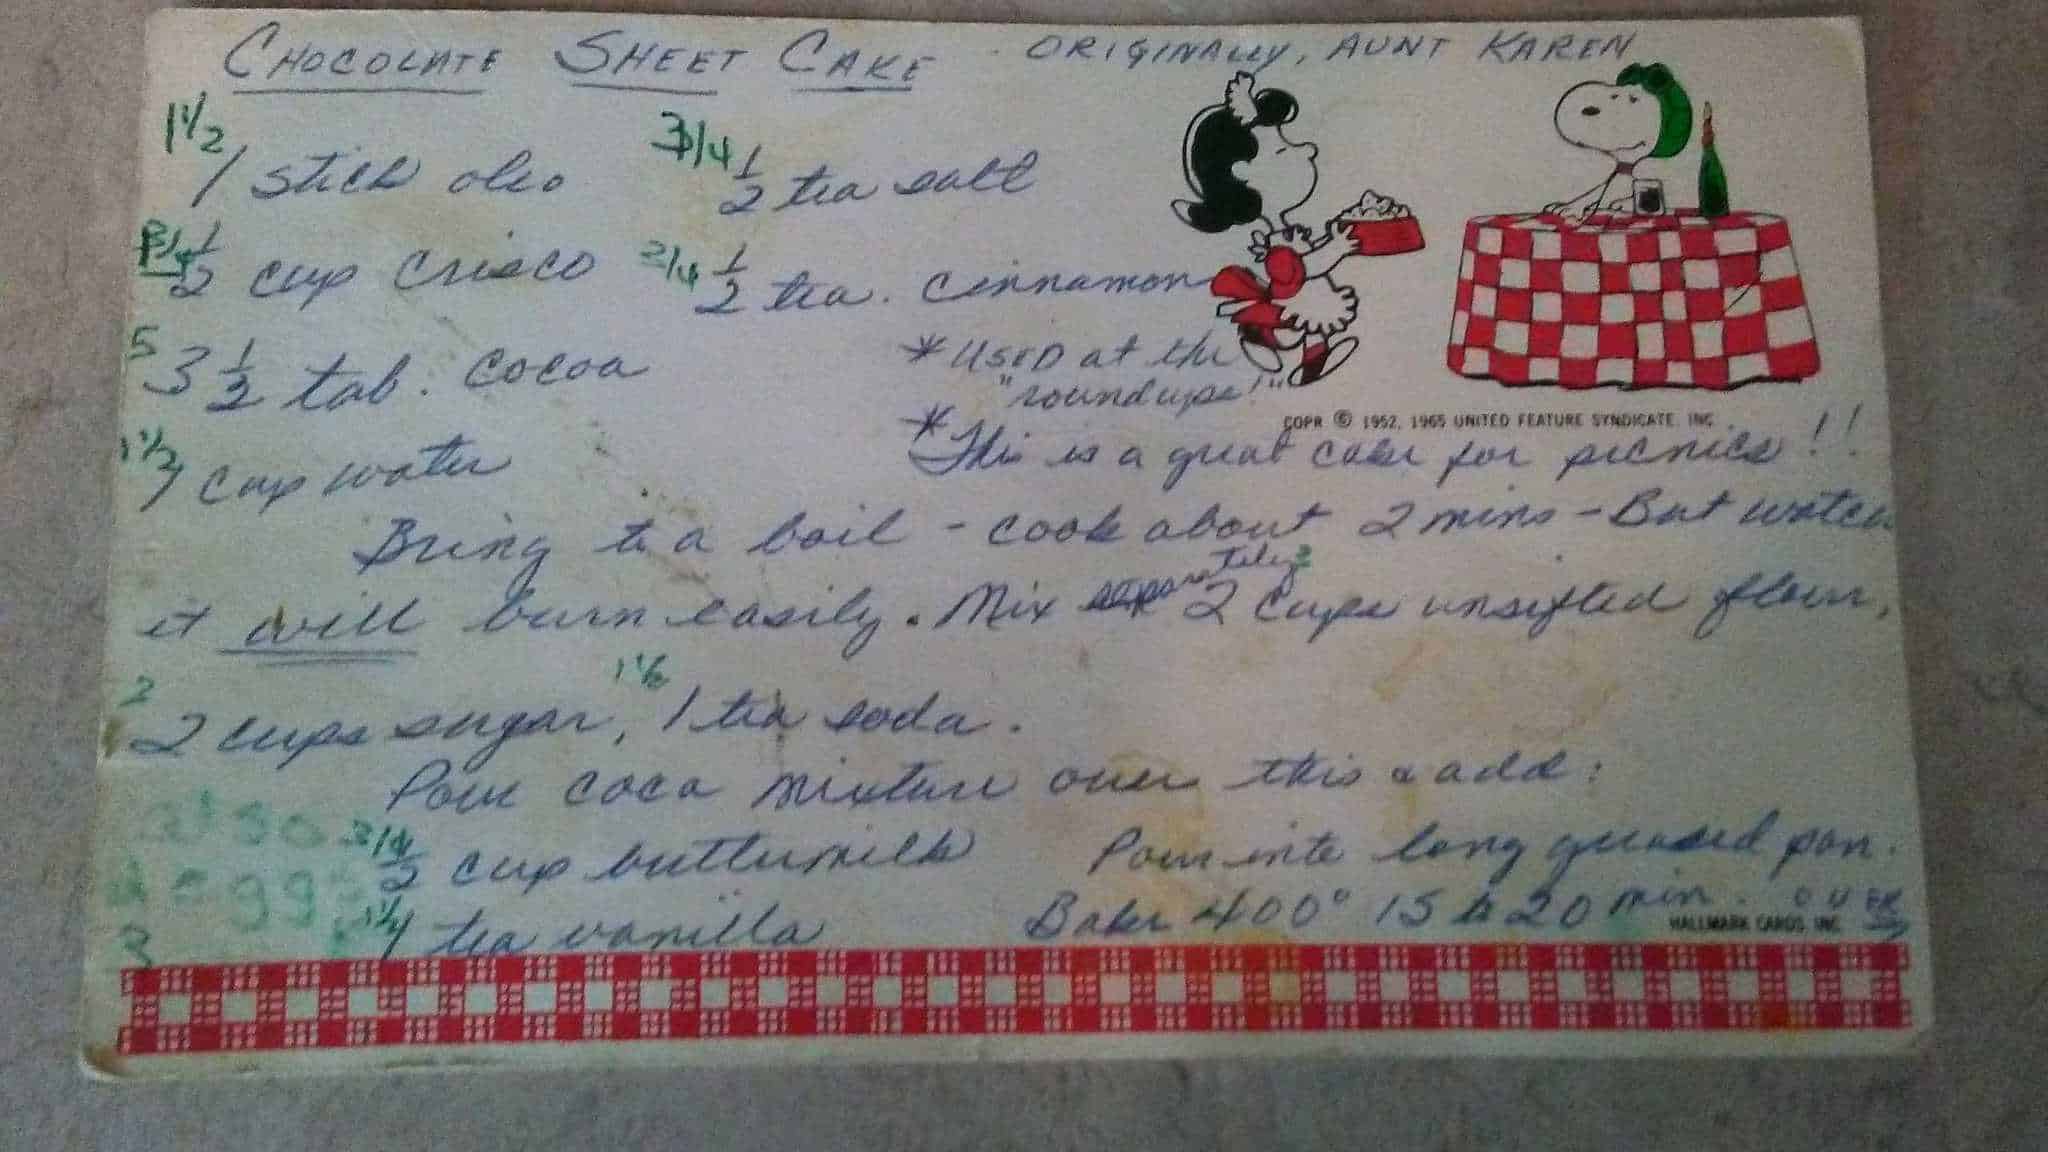 CHOCOLATE SHEET CAKE - ORIGINALLY, AUNT KAREN
1 1/2 3/4
1 stick oleo 1/2 tea salt
3/4 1/2 cup crisco 3/4 1/2 tea. cinnamon
5 3 1/2 tab. cocoa * USED at the
"roundups!"
COPR © 1952, 1965 UNITED FEATURE SYNDICATE, INC.
1 1/2 1 cup water * This is a great cake for picnics!!
Bring to a boil - cook about 2 mins - But watch
it will burn easily. Mix separately 2 cups unsifted flour,
2 1 1/2
2 cups sugar, 1 tea soda.
Pour coca mixture over this & add:
3/4 1/2 cup buttermilk Pour into long greased pan.
1 tea vanilla Bake 400° 15 to 20 min. OVER
HALLMARK CARDS, INC.